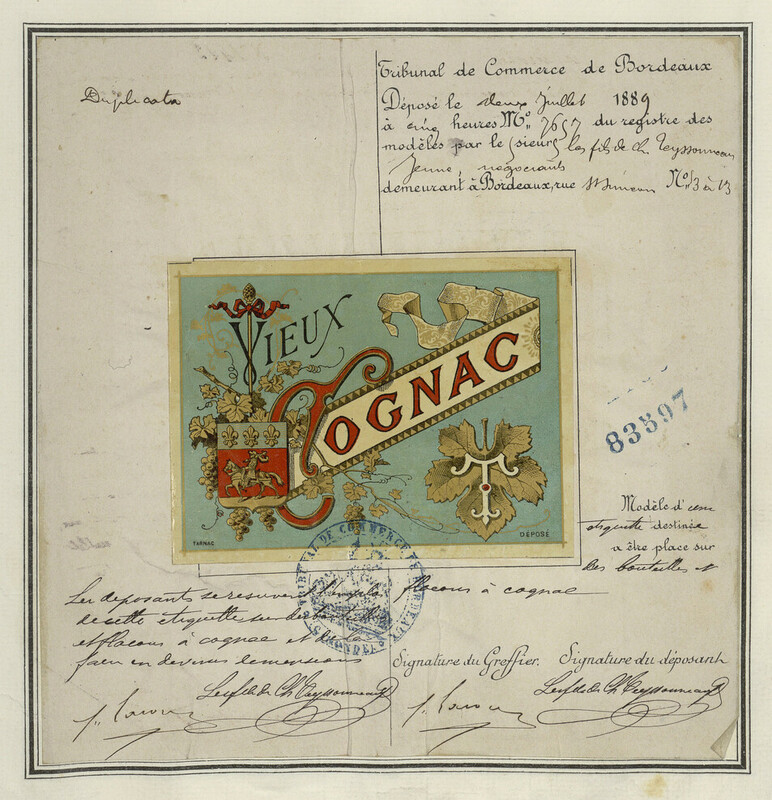 Duplicata
Tribunal de Commerce de Bordeaux
Déposé le deux Juillet 1889
à cinq heures No. 7657 du registre des
modèles par le (sieur) les fils de Ch. Teyssonneau
Jeune, négociants
demeurant à Bordeaux, rue No. 3 à 13
VIEUX
COGNAC
T
TARNAC
DÉPOSÉ
83597
Modèle d'une
étiquette destinée
a être place sur
des bouteilles et
flacons à cognac
TRIBUNAL DE COMMERCE DE BORDEAUX
(GIRONDE)
Les déposants se reservent l'emploi
de cette étiquette sur des bouteilles
et flacons à cognac et de la
faire en diverses dimensions
Signature du Greffier. Signature du déposant
Les fils de Ch. Teyssonneau J
Les fils de Ch. Teyssonneau J